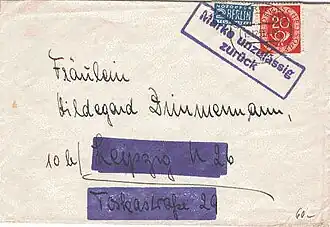 NOTOPFER
2 BERLIN
STEUERMARKE
20
Marke unzulässig
zurück
Fräulein
Hildegard Dimmermann,
10b/ Leipzig N 26
Torkastraße 29
60.-